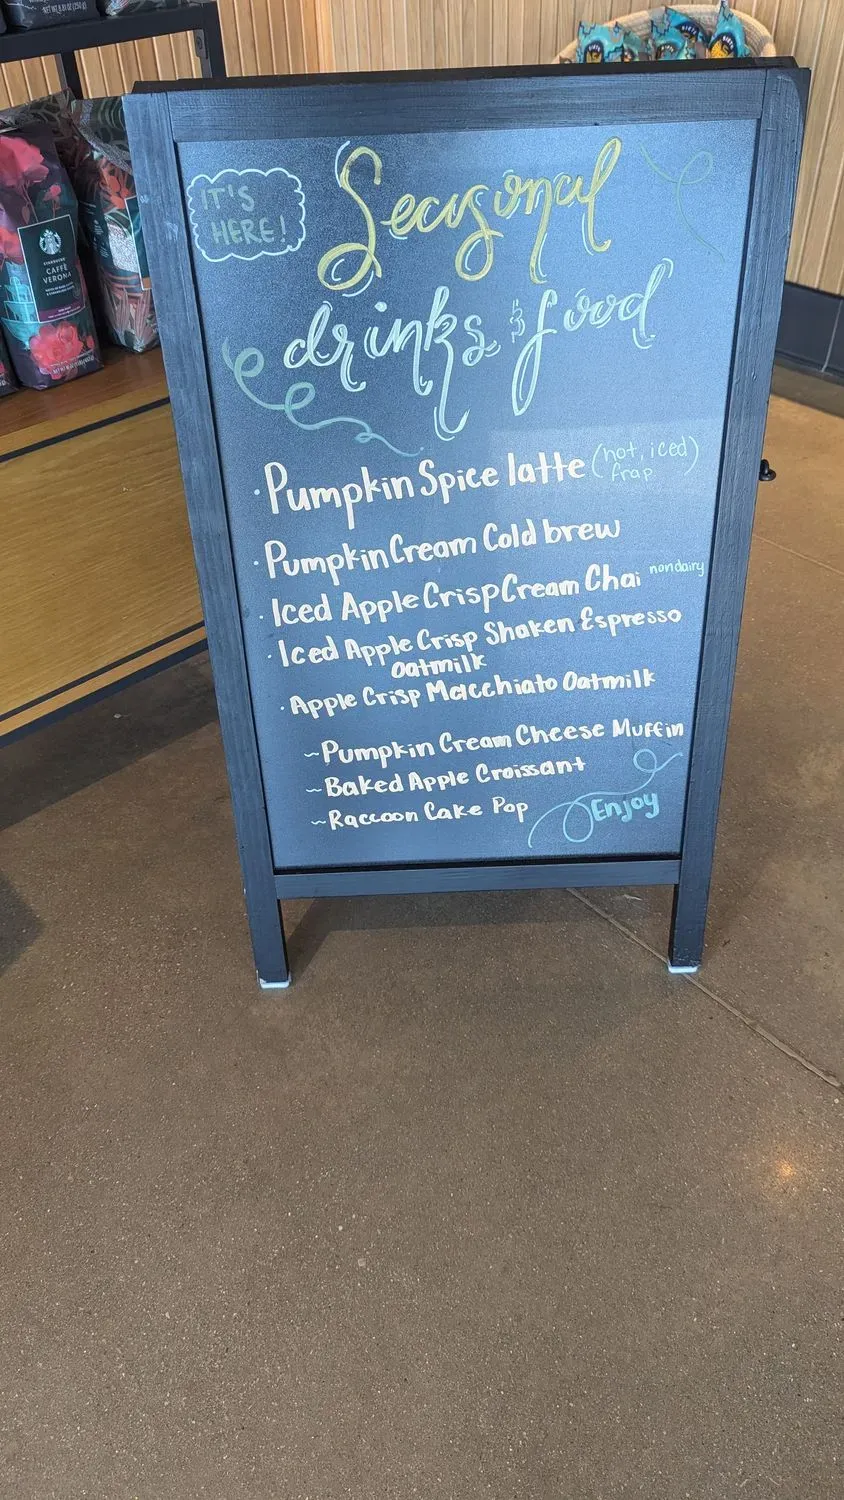 IT'S
HERE!
Seasonal
drinks & food
· Pumpkin Spice latte (hot, iced)
frap
· Pumpkin Cream Cold brew
· Iced Apple Crisp Cream Chai nondairy
· Iced Apple Crisp Shaken Espresso
oatmilk
· Apple Crisp Macchiato Oatmilk
~Pumpkin Cream Cheese Muffin
~Baked Apple Croissant
~Raccoon Cake Pop
Enjoy
STARBUCKS
CAFFÈ
VERONA